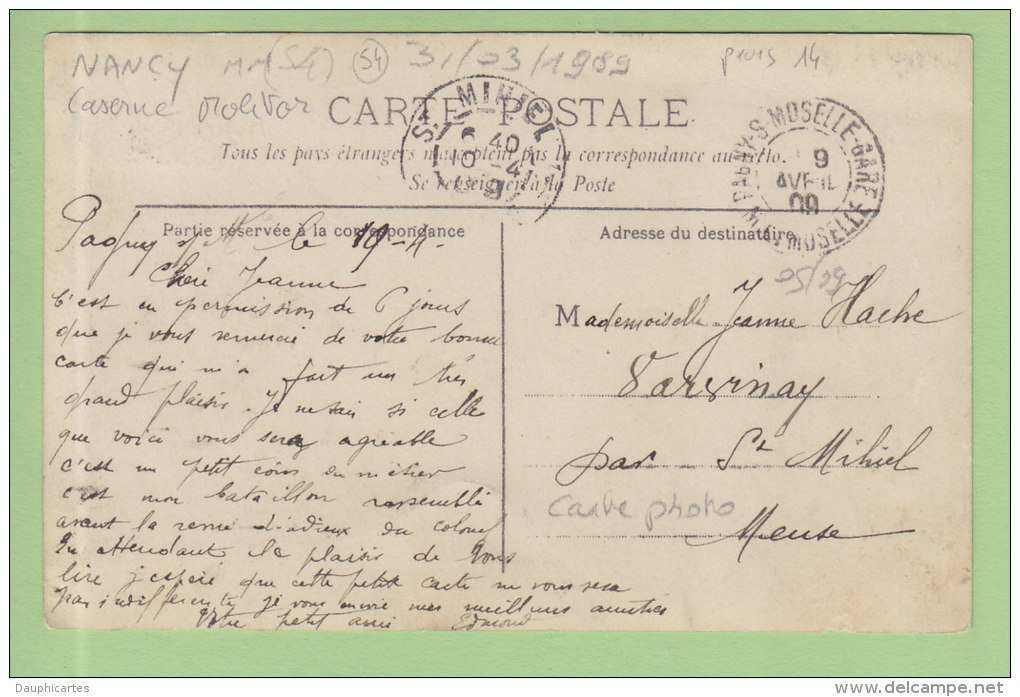 NANCY MM (54) (54) 31/03/1989
prus 14
Caserne Molitor
CARTE POSTALE
Tous les pays étrangers n'acceptent pas la correspondance au recto.
Se renseigner à la Poste
ST MIHIEL
40
PAGNY-S-MOSELLE-GARE
9
AVRIL
09
MOSELLE
Partie réservée à la correspondance
Adresse du destinataire
Pagny s/M le 19-4-
Chère Jeanne
C'est en permission de 6 jours
que je vous remercie de votre bonne
carte qui m'a fait un très
grand plaisir. Je ne sais si celle
que voici vous sera agréable
c'est un petit coin du métier
c'est mon bataillon rassemblé
avant la revue d'adieux du colonel
En attendant le plaisir de vous
lire j'espère que cette petite carte ne vous sera
pas indifférente je vous envoie mes meilleures amitiés
Votre petit ami Edmond
95/29
Mademoiselle Jeanne Hache
Varvinay
par St Mihiel
Carte photo
Meuse
Dauphicartes
www.delcampe.net